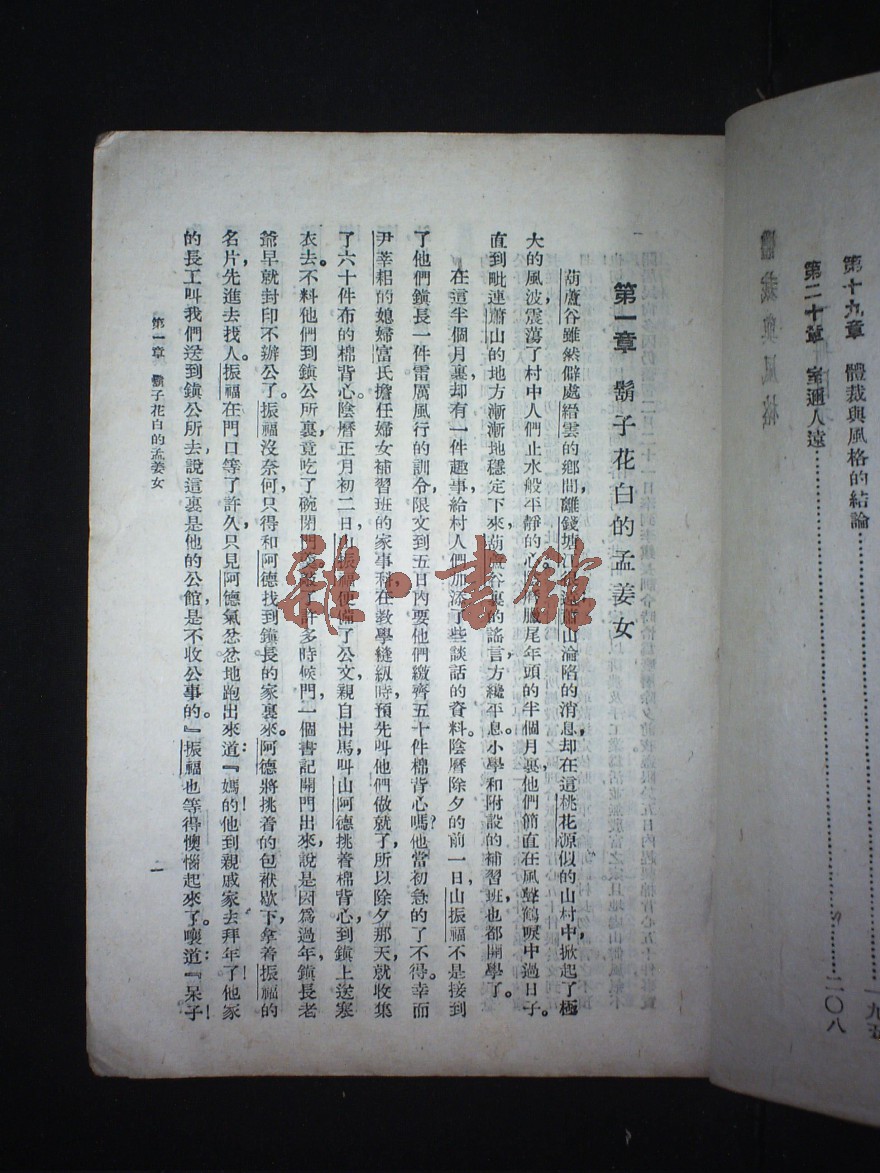 第十九章　體裁與風格的結論……………一九五
第二十章　室邇人遠……………二〇八
第一章　鬍子花白的孟姜女
葫蘆谷雖然僻處縉雲的鄉間，離錢塘江
山淪陷的消息，却在這桃花源似的山村中，掀起了極
大的風波，震蕩了村中人們止水般平靜的心
臘尾年頭的半個月裏，他們簡直在風聲鶴唳中過日子。
直到毗連蕭山的地方漸漸地穩定下來，葫蘆谷裏的謠言方纔平息。小學和附設的補習班也都開學了。
在這半個月裏，却有一件趣事，給村人們加添了些談話的資料。陰曆除夕的前一日，山振福不是接到
了他們鎮長一件雷厲風行的訓令，限文到五日內要他們繳齊五十件棉背心嗎？他當初急的了不得。幸而
尹莘耜的媳婦富氏擔任婦女補習班的家事科，在教學縫紉時，預先叫他們做就了，所以除夕那天，就收集
了六十件布的棉背心。陰曆正月初二日，山振福便備了公文，親自出馬，叫山阿德挑着棉背心，到鎮上送寒
衣去。不料他們到鎮公所裏，竟吃了碗閉門
了許多時候門，一個書記開門出來，說是因爲過年，鎮長老
爺早就封印不辦公了。振福沒奈何，只得和阿德找到鎮長的家裏來。阿德將挑着的包袱歇下，拿着振福的
名片，先進去找人。振福在門口等了許久，只見阿德氣忿忿地跑出來道：『媽的！他到親戚家去拜年了！他家
的長工叫我們送到鎮公所去，說這裏是他的公館，是不收公事的。』振福也等得懊惱起來了。嚷道：『呆子！
第一章　鬍子花白的孟姜女
一
雜·書館